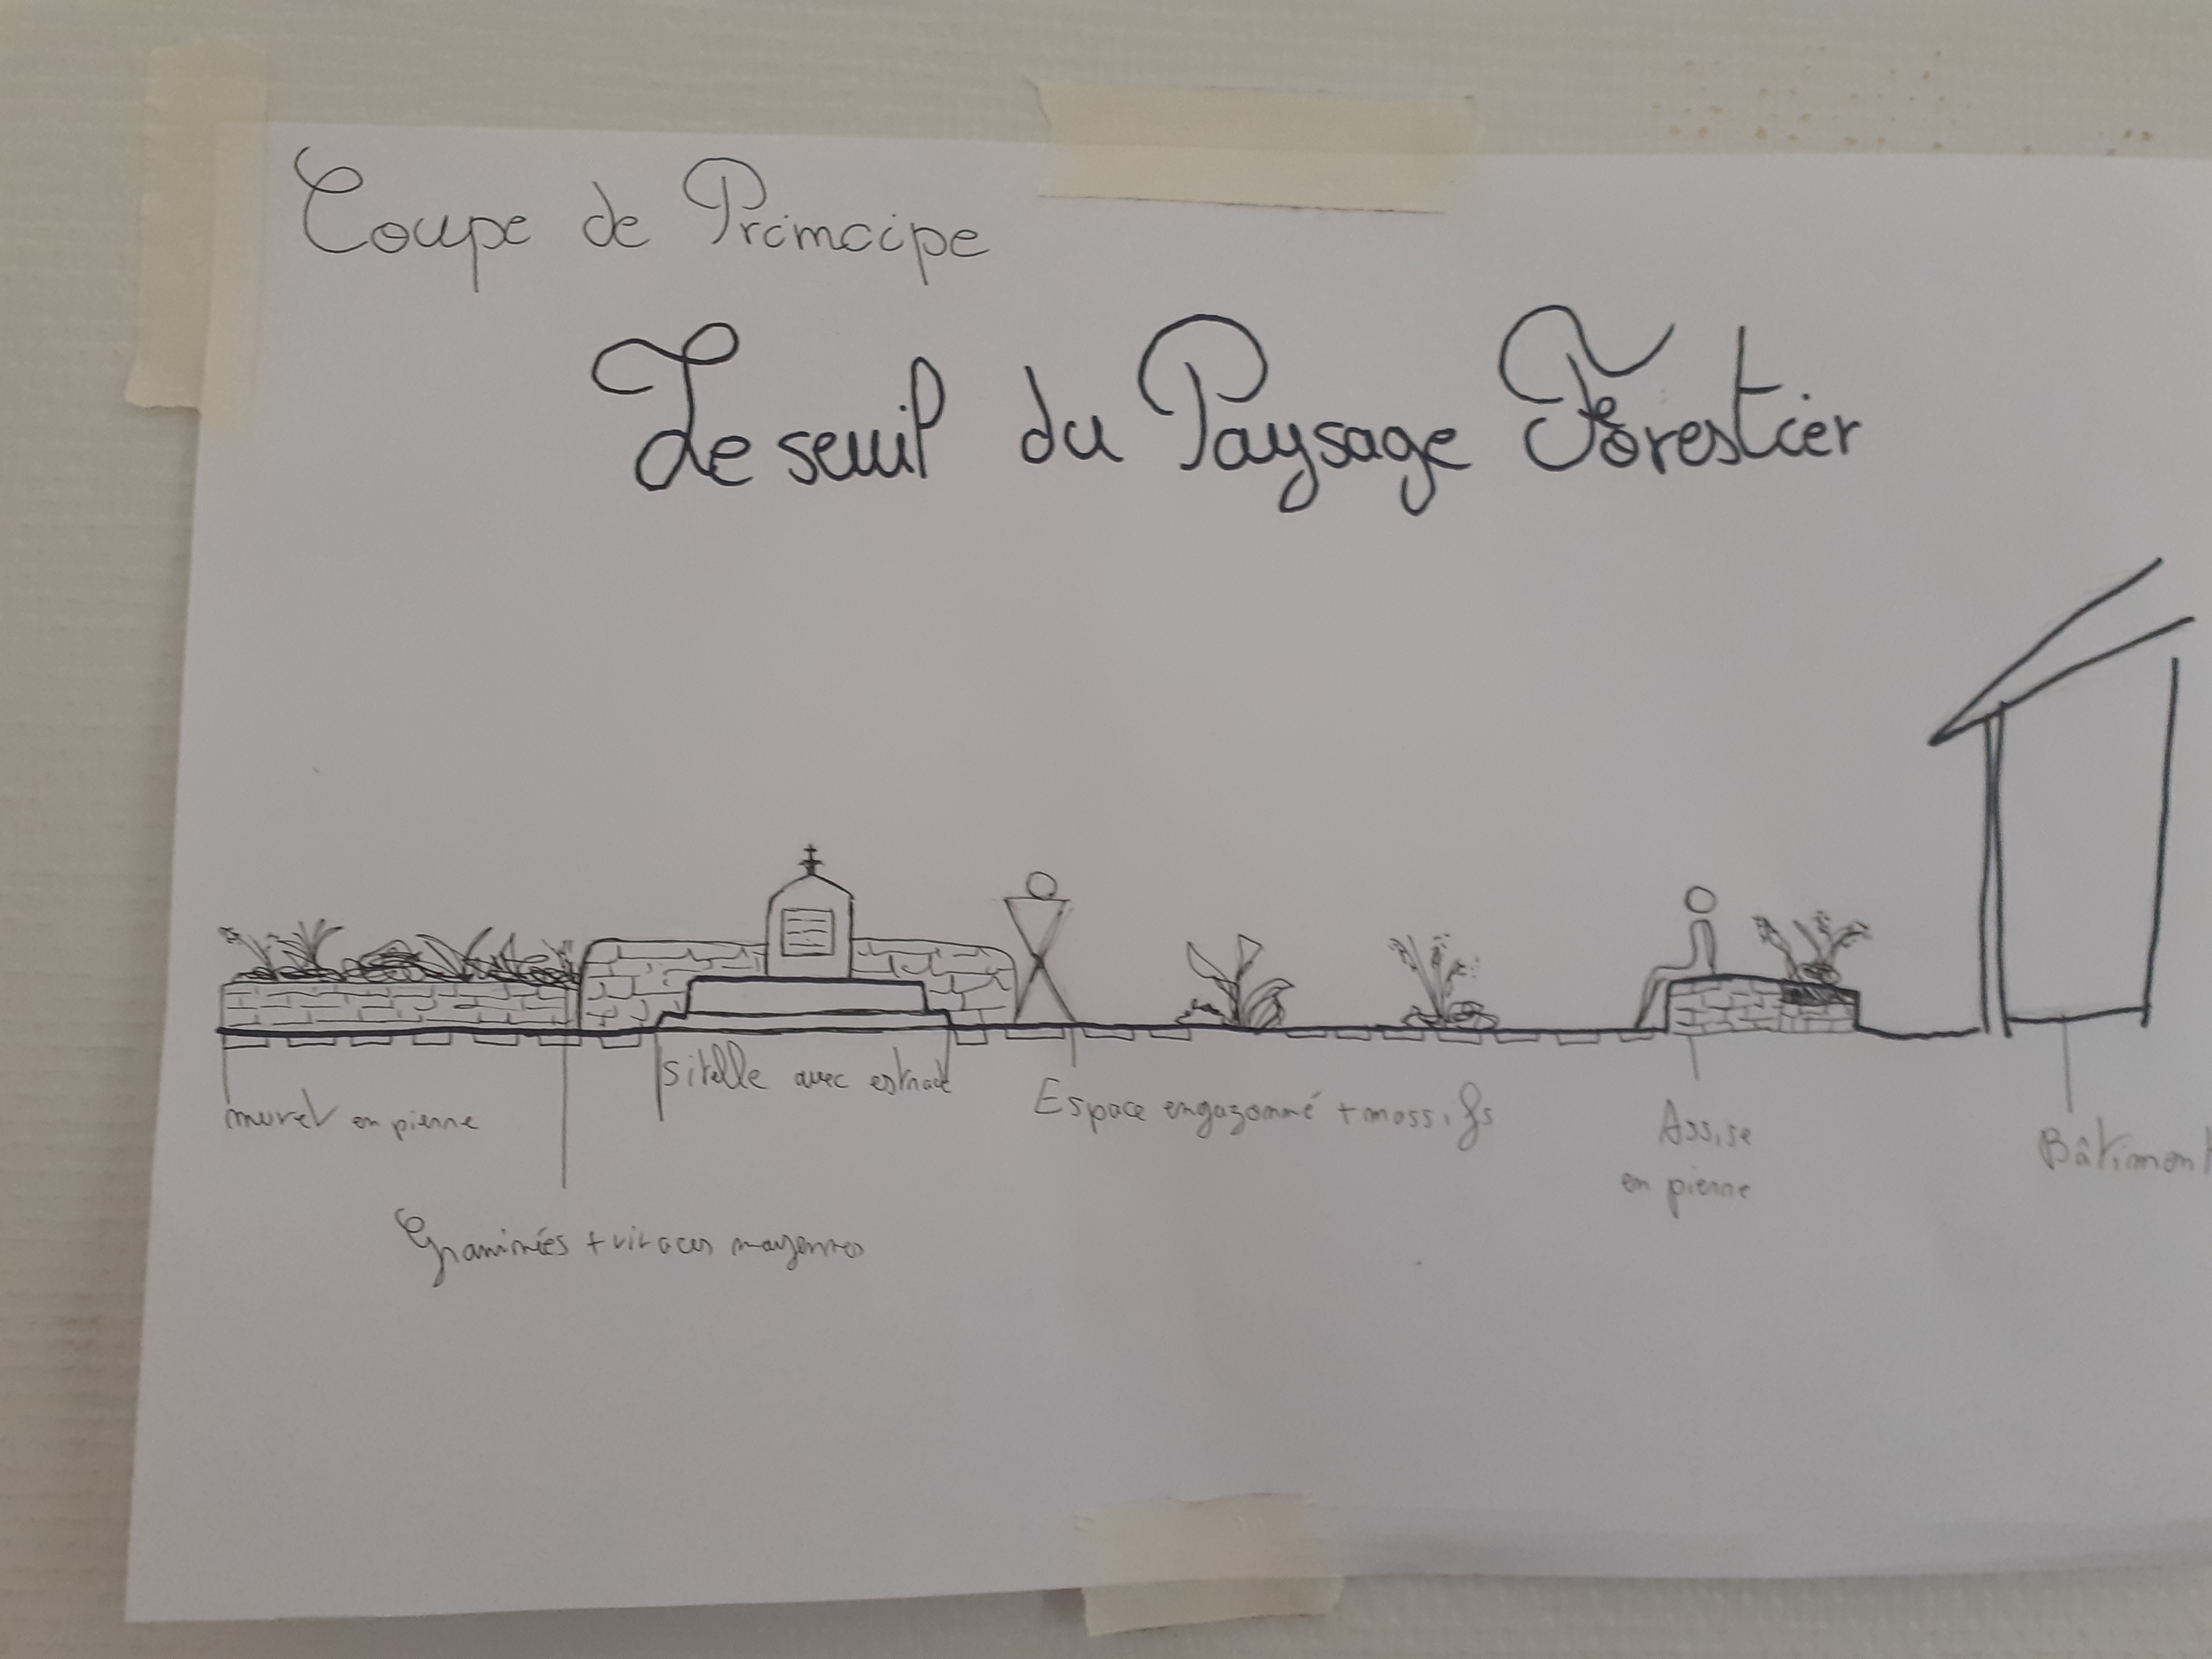 Coupe de Principe
Le seuil du Paysage Forestier
sitelle avec estrade
muret en pierre
Espace engazonné + massifs
Assise
en pierre
Bâtiment
Graminées + vivaces moyennes